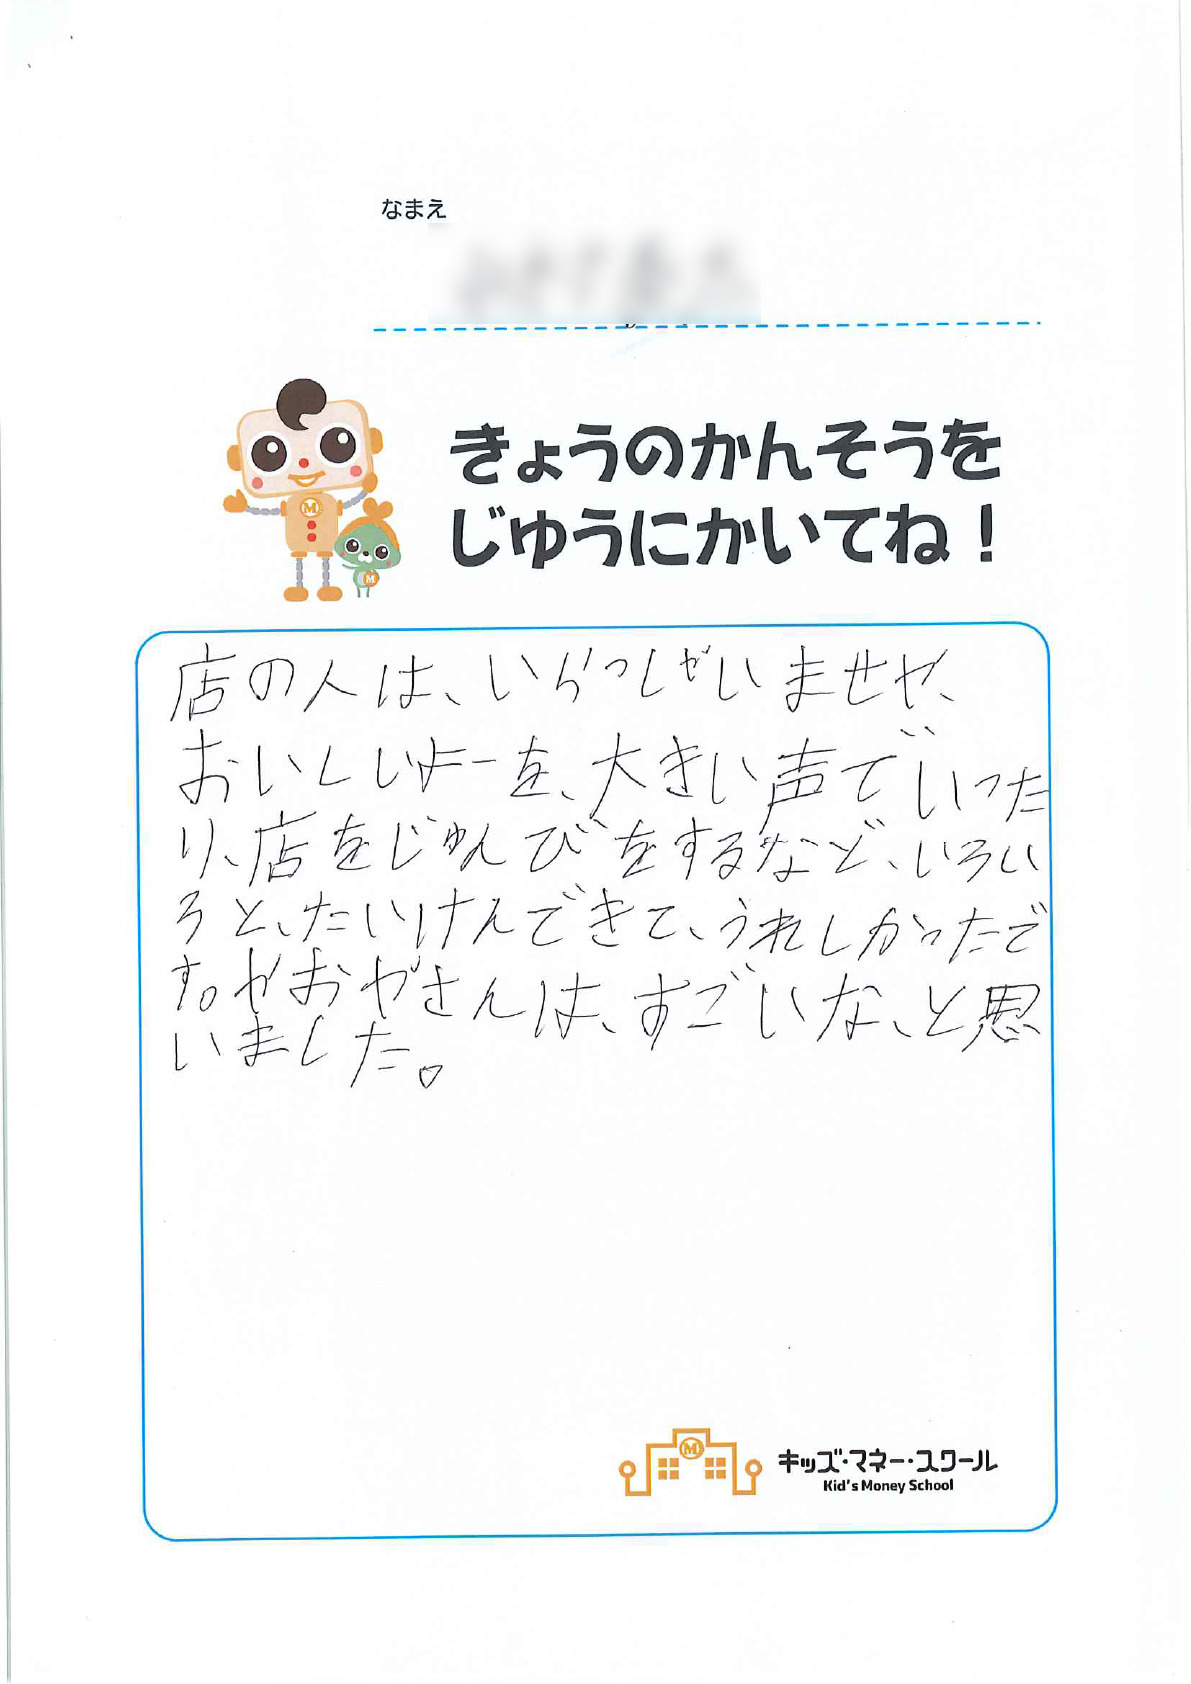 なまえ
きょうのかんそうを
じゆうにかいてね！
店の人は、いらっしゃいませや、
おいしいよーを、大きい声でいった
り、店をじゅんびをするなど、いろい
ろと、たいけんできて、うれしかったで
す。やおやさんは、すごいな、と思
いました。
M
M
M
キッズ・マネー・スクール
Kid's Money School